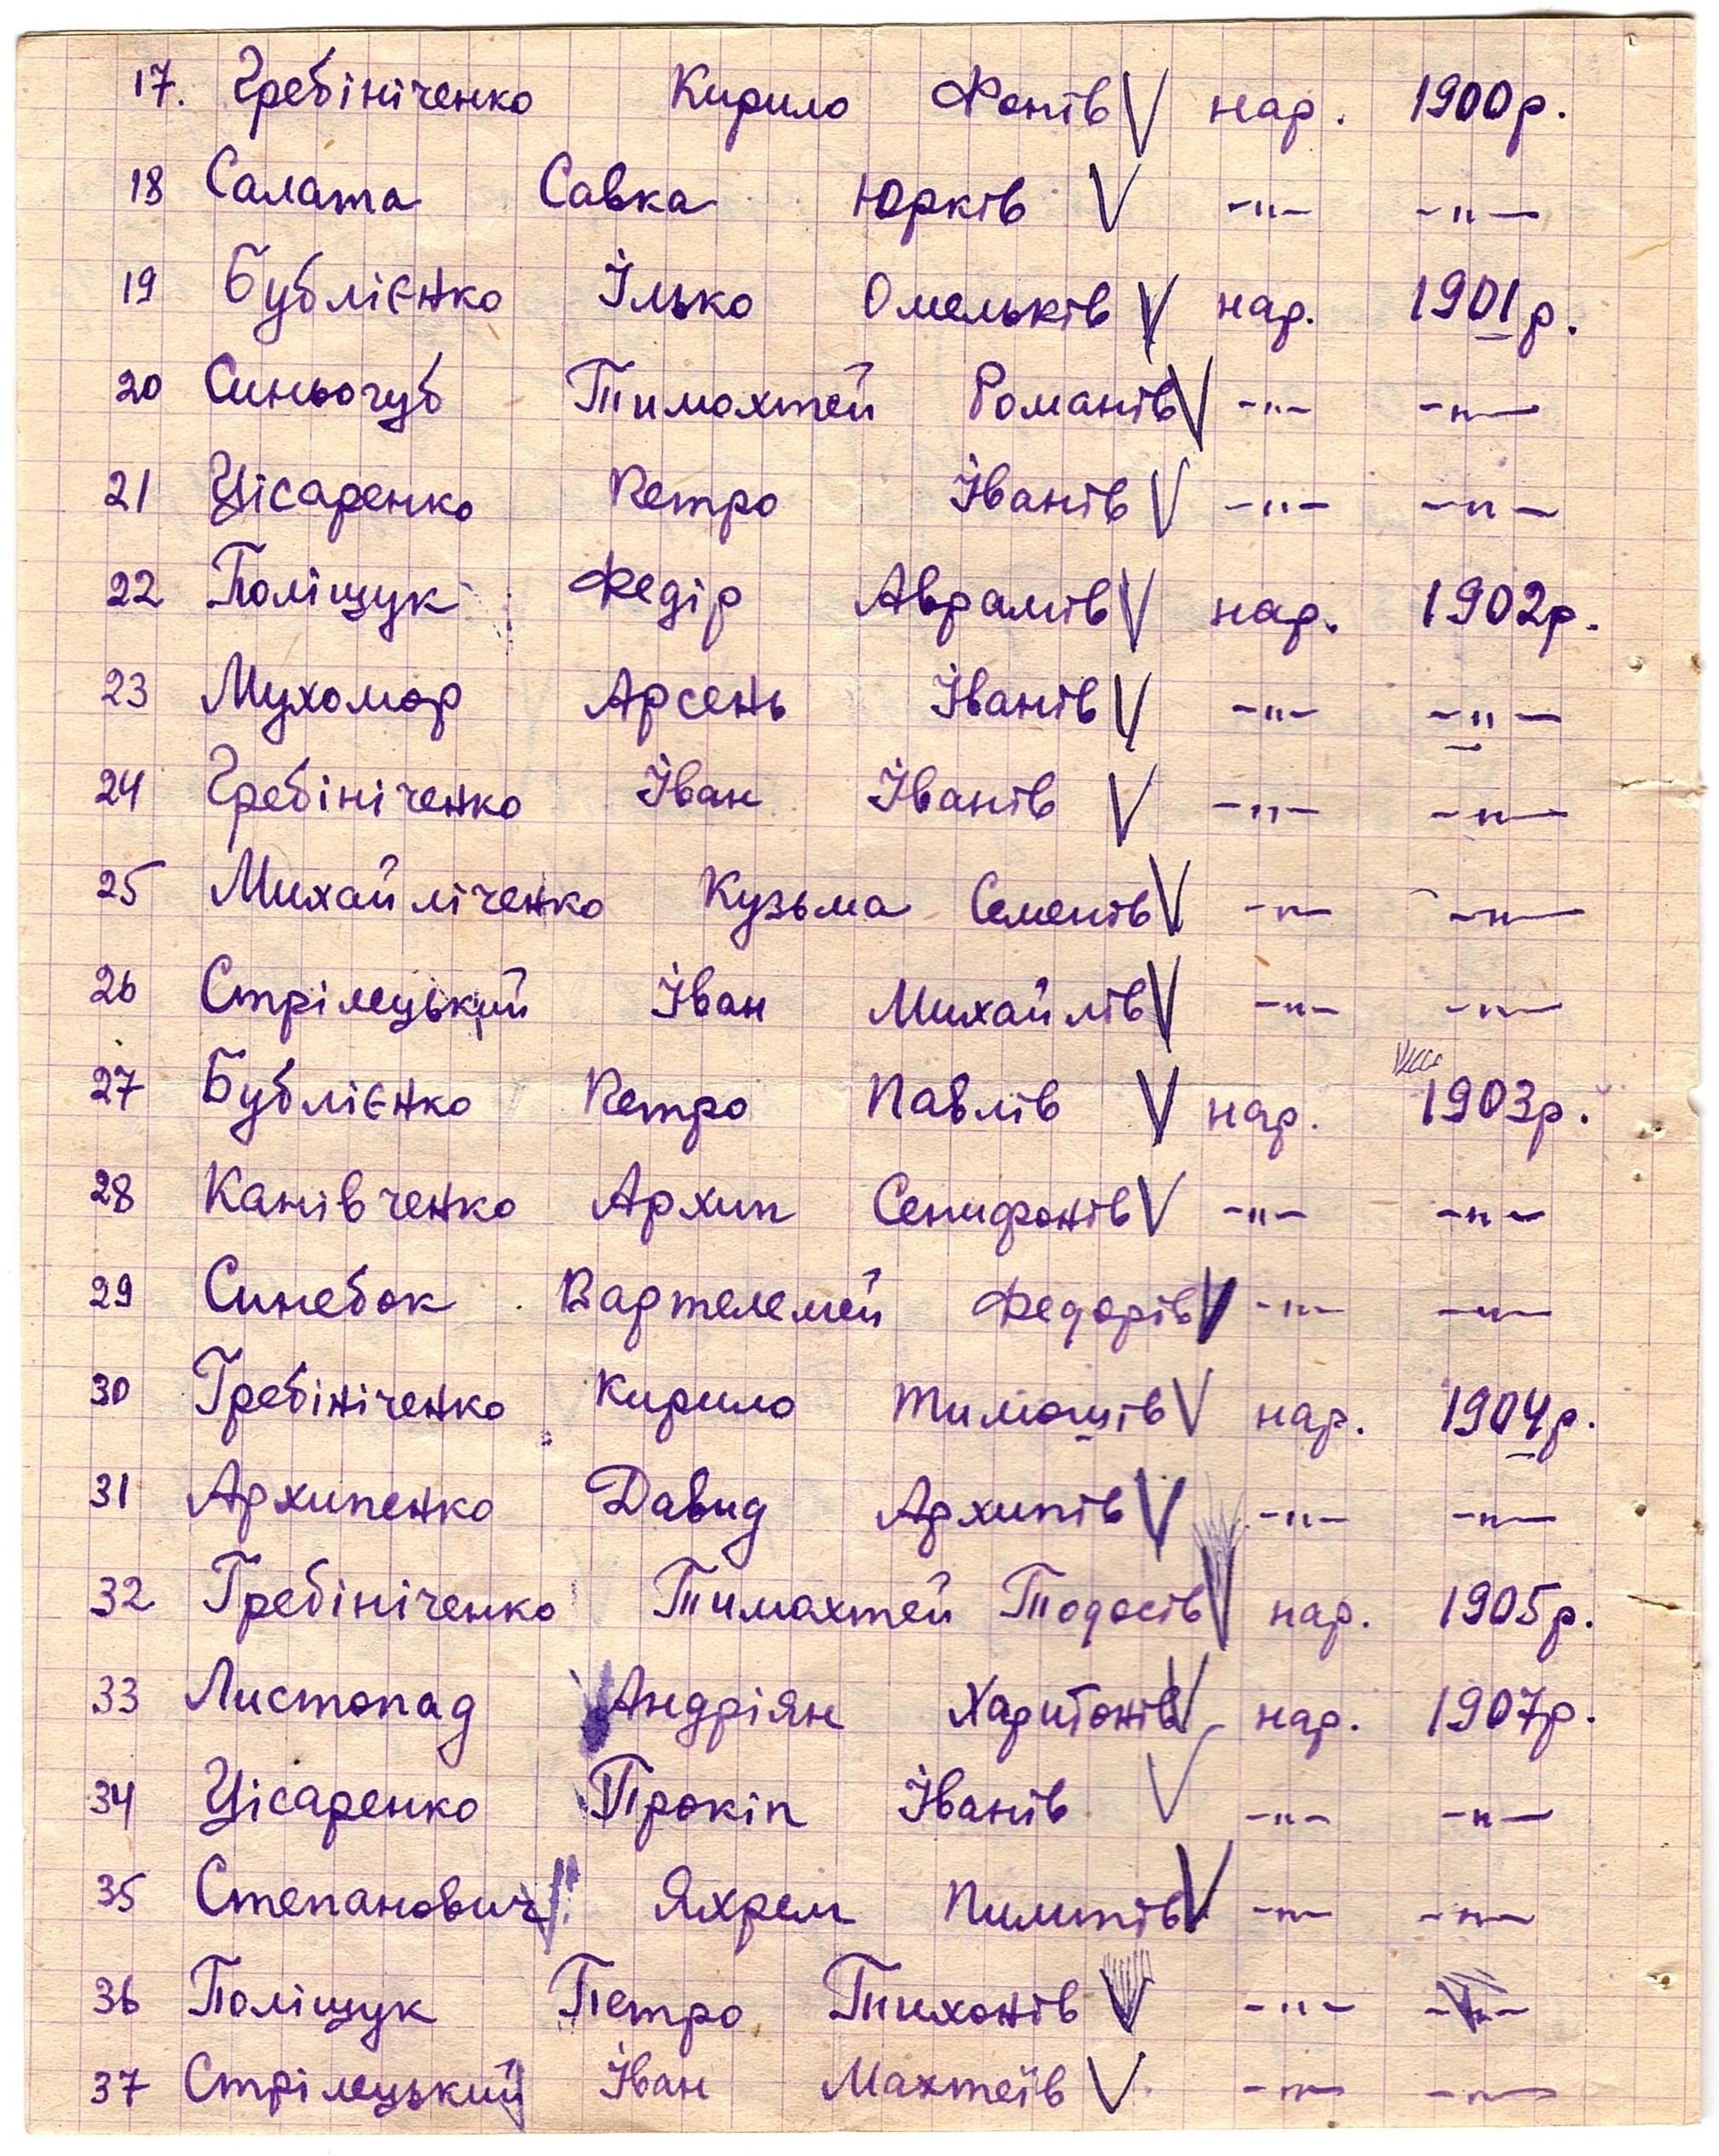 17. Гребініченко Кирило Фотів V нар. 1900р.
18 Салата Савка Юрків V -"- -"-
19 Бублієнко Ілько Омельків V нар. 1901р.
20 Синьогуб Тимохтей Романів V -"- -"-
21 Цісаренко Петро Іванів V -"- -"-
22 Поліщук Федір Аврамів V нар. 1902р.
23 Мухомор Арсень Іванів V -"- -"-
24 Гребініченко Іван Іванів V -"- -"-
25 Михайліченко Кузьма Семенів V -"- -"-
26 Стрілецький Іван Михайлів V -"- -"-
27 Бублієнко Петро Павлів V нар. 1903р.
28 Канівченко Архип Сенифонів V -"- -"-
29 Синебок Вартелемей Федорів V -"- -"-
30 Гребініченко Кирило Тимошів V нар. 1904р.
31 Архипенко Давид Архипів V -"- -"-
32 Гребініченко Тимохтей Тодосів V нар. 1905р.
33 Листопад Андріян Харитонів V нар. 1907р.
34 Цісаренко Прокіп Іванів V -"- -"-
35 Степанович Яхрем Пилипів V -"- -"-
36 Поліщук Петро Тихонів V -"- -"-
37 Стрілецький Іван Махтеїв V -"- -"-